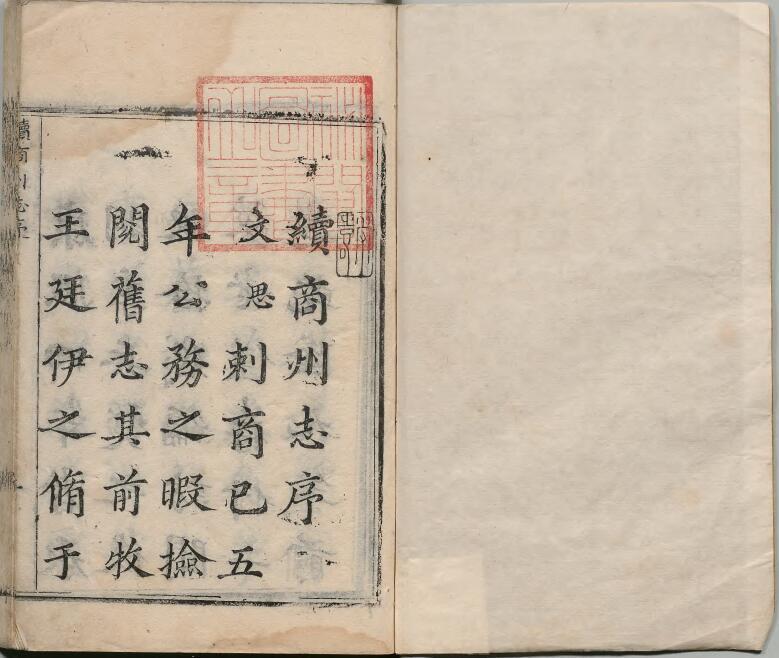 續商州志序
文思刺商已五
年公務之暇撿
閱舊志其前牧
王廷伊之脩于
續商州志序